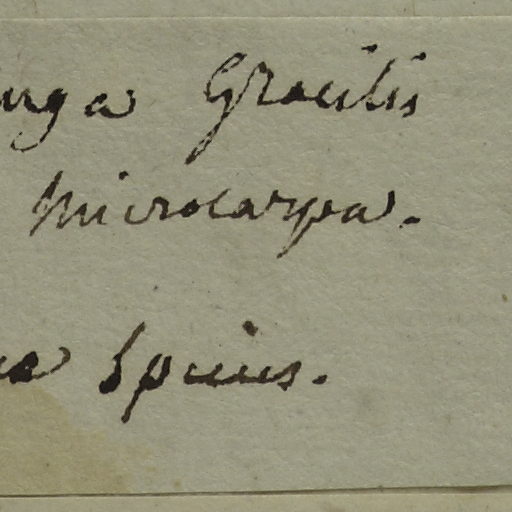 urga Gracilis
microcarpa.
Spinis.